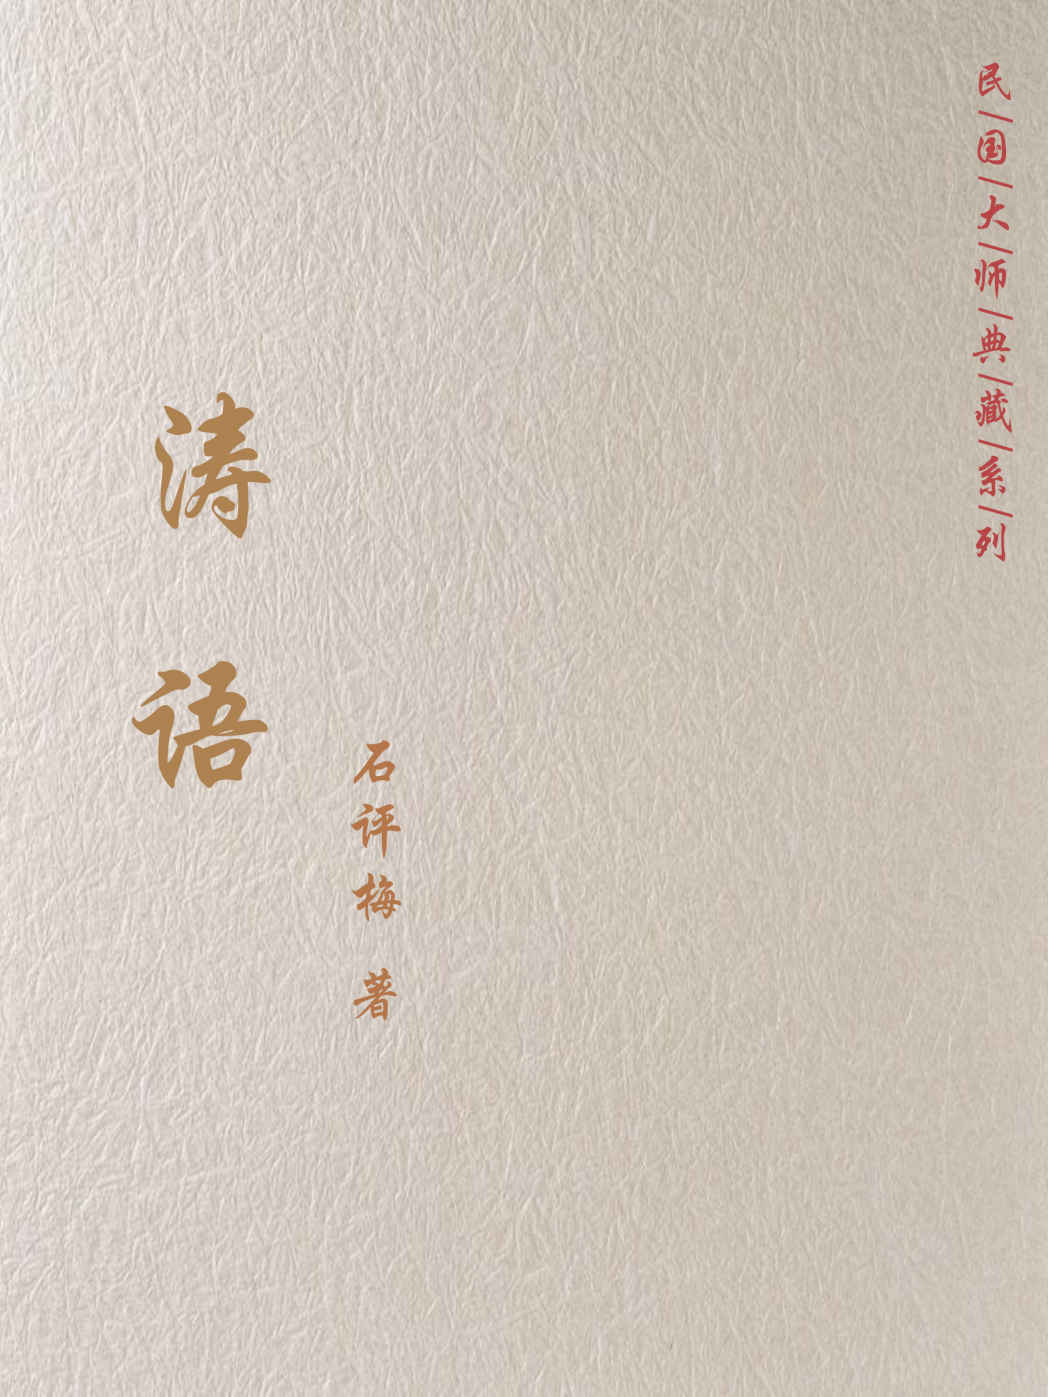 民/国/大/师/典/藏/系/列
涛语
石评梅 著